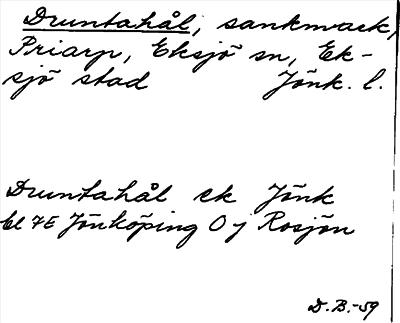 Druntahål, sankmark,
Priarp, Eksjö sn, Ek-
sjö stad Jönk. l.
Druntahål ek Jönk
bl 7E Jönköping O j Rosjön
D. B.-59